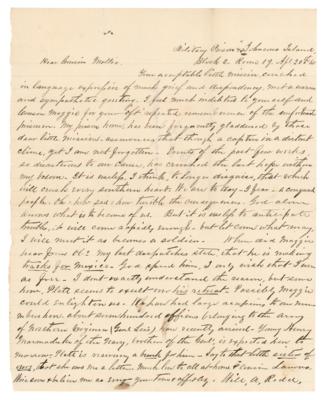 Military Prison Johnsons Island
Block 2. Room 19. Apl 20th
Dear Cousin Mollie
Your acceptable little missive couched
in language expressive of much grief and despondency, met a warm
and sympathetic greeting. I feel much indebted to yourself and
cousin Maggie for your oft repeated remembrances of the
prisoner. My prison home has been frequently gladdened by those
dear little missives, assurances that though a captive in a distant
clime, yet I am not forgotten. Events of the past few weeks
so disastrous to our cause, has crushed the last hope within
my bosom. It is useless, I think, to longer disguise, that which
will crush every southern heart. We are to day, I fear, a conquered
people. Oh! how sad, how terrible the consequences. God alone
knows what is to become of us. But it is useless to anticipate
trouble, it will come rapidly enough, but let come what may,
I will meet it as becomes a soldier. When did Maggie
hear from Ol? My last dispatches state, that he is making
tracks for Mexico. Do so spend him, I only wish that I was
as free. I don't exactly understand the reason, but some
how, Platte seems to exult over his retreat. Possibly Maggie
could enlighten us. We have had large accessions to our num
bers here, about nine hundred officers belonging to the army
of Northern Virginia (Genl Lee's) have recently arrived. Young Henry
Marmaduke of the Navy, brother of the Genl, is expected here to
morrow. Platte is reserving a bunk for him. Say to that little sister of
yours, that she owes me a letter. Much love to all at home & Cousin
Write soon & believe me as ever your friend
Will. A.